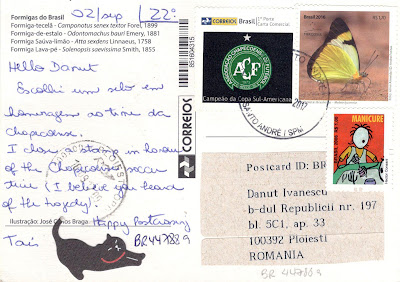 Formigas do Brasil
Formiga-tecelã - Camponotus senex textor Forel, 1899
Formiga-de-estalo - Odontomachus bauri Emery, 1881
Formiga Saúva-limão - Atta sexdens Linnaeus, 1758
Formiga Lava-pé - Solenopsis saevissima Smith, 1855
02/sep / 22º
Hello Danut
Escolhi um selo em
homenagem ao time da
chapecoense.
I chose stamp in honour
of the Chapecoense soccer
time (I believe you heard
of the tragedy).
Ilustração: José Carlos Braga
Happy Postcrossing
Taís
BR447889
CORREIOS
CORREIOS Brasil
1º Porte
Carta Comercial
ACF
Campeão da Copa Sul-Americana
Brasil 2016
2017
SANTO ANDRÉ / SPM
MANICURE
Postcard ID: BR
Danut Ivanescu
b-dul Republicii nr. 197
bl. 5C1, ap. 33
100392 Ploiesti
ROMANIA
BR 447889